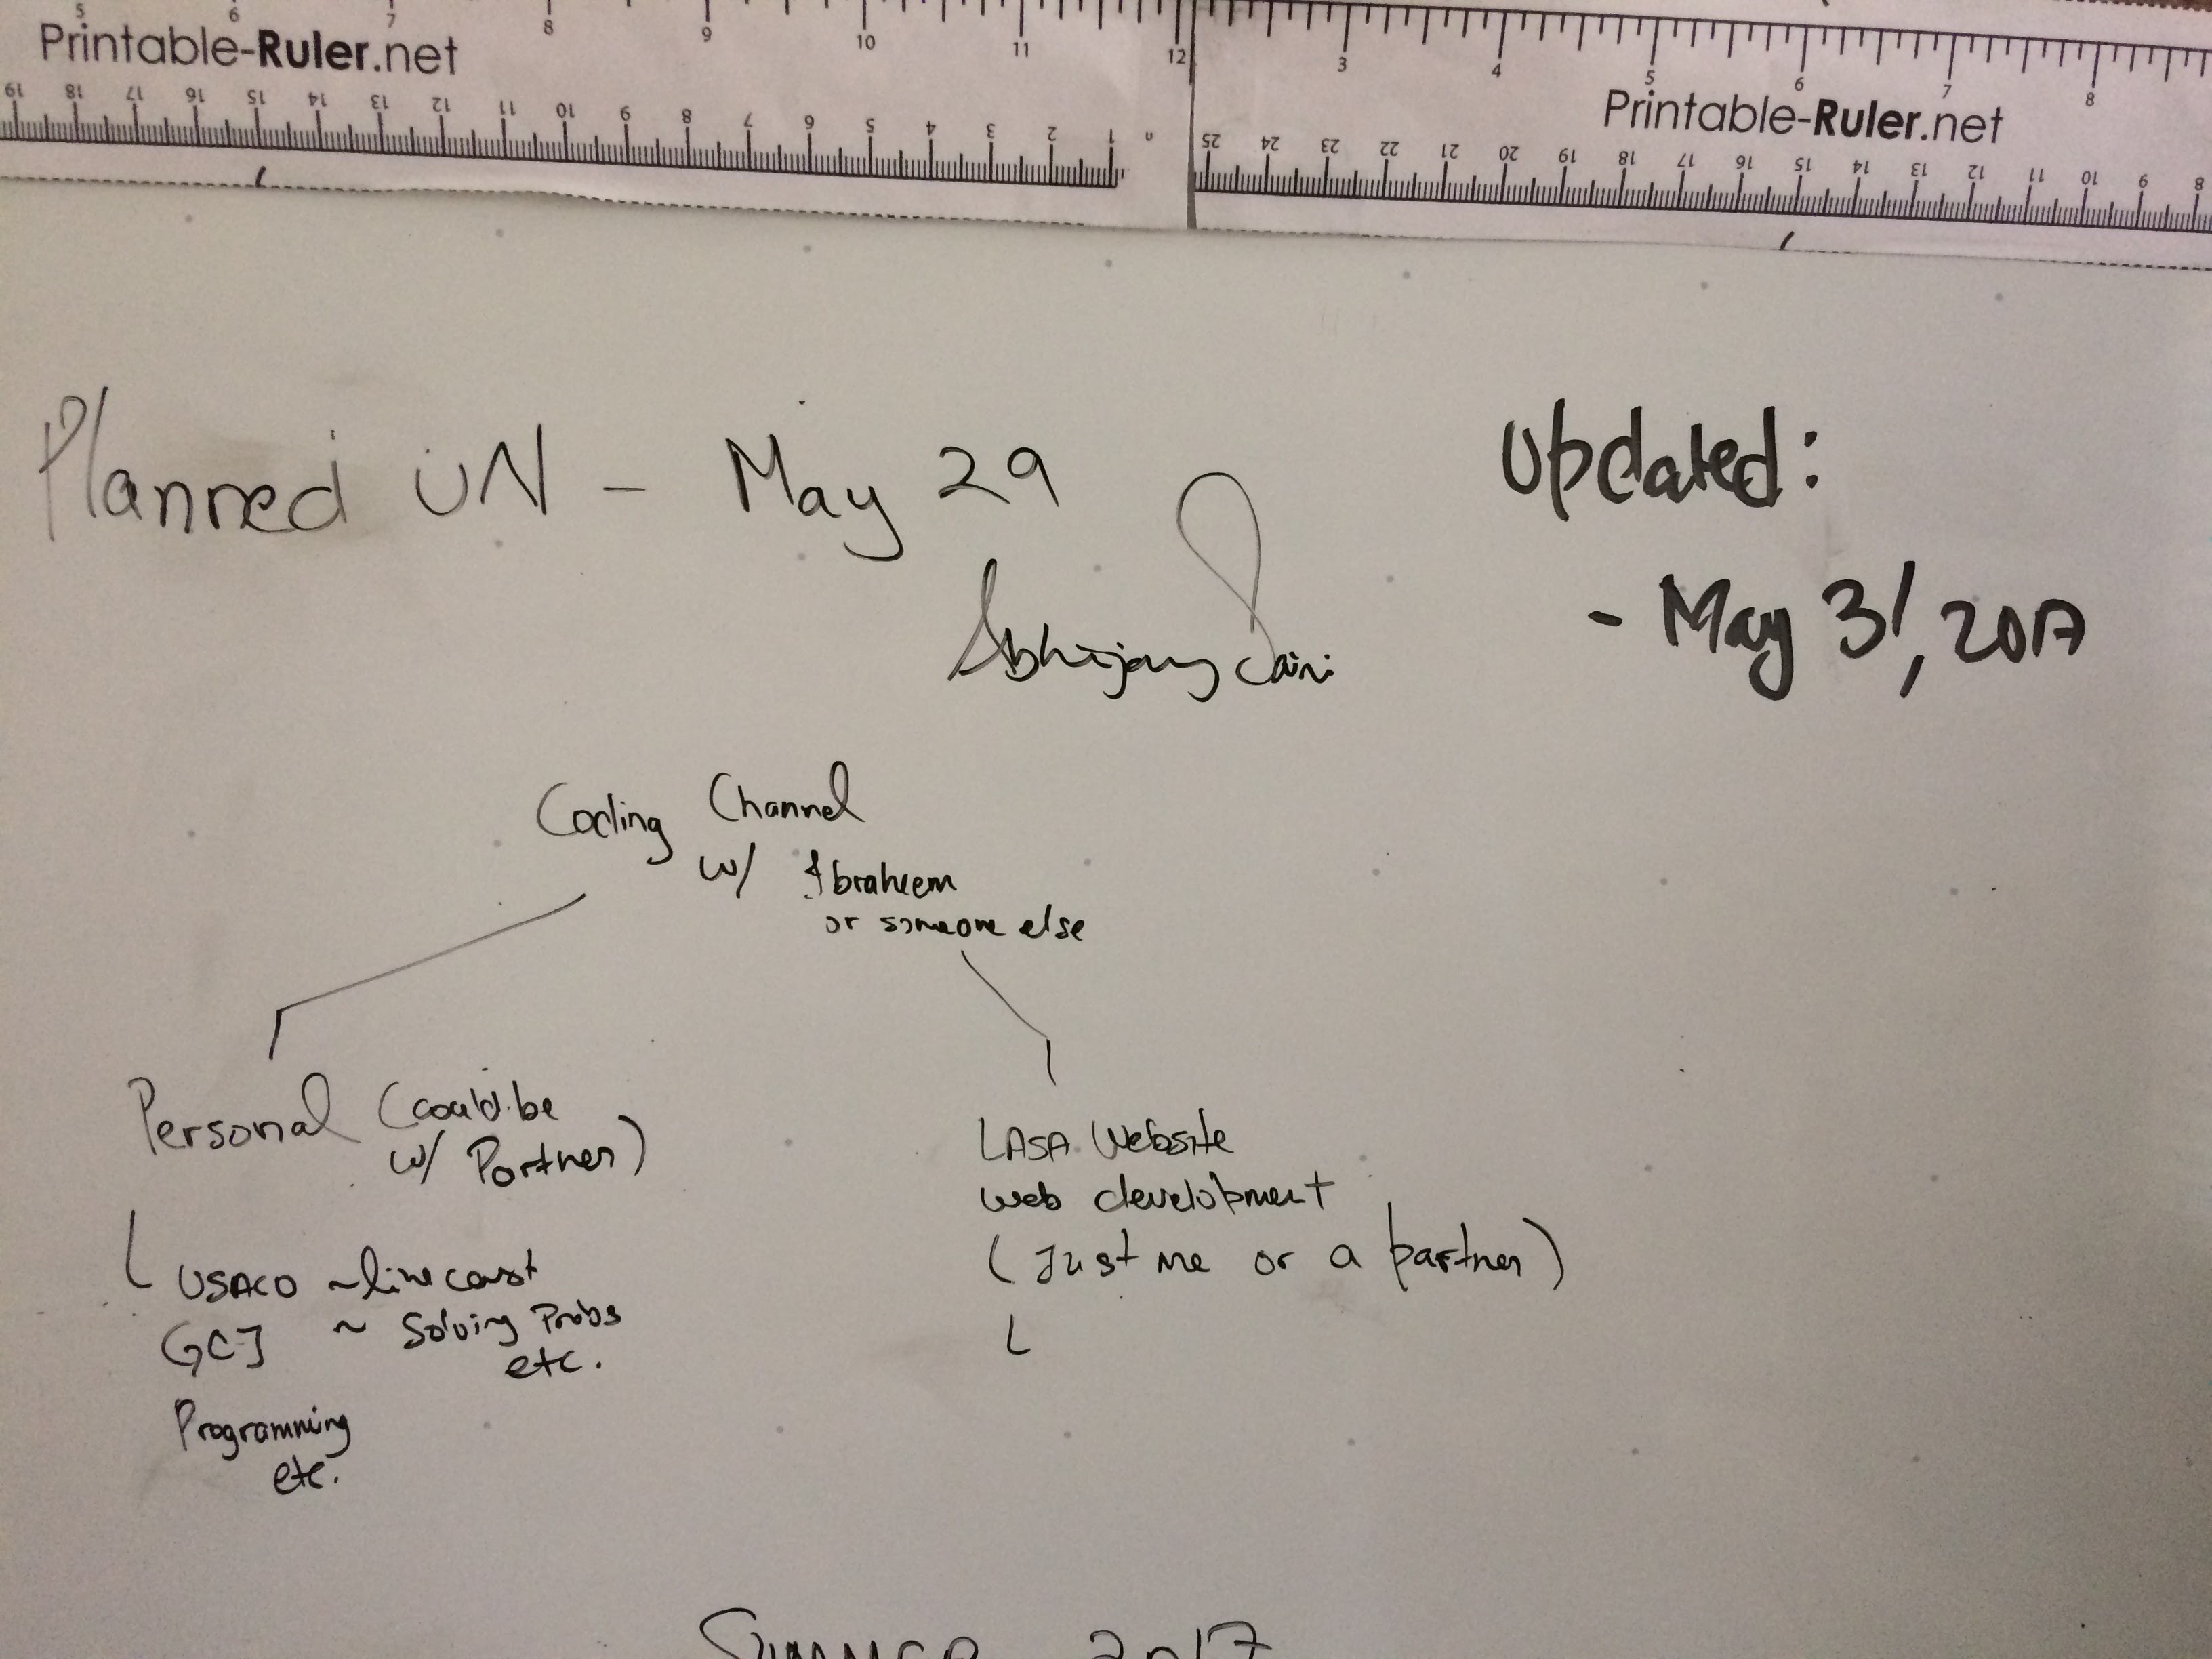 5 6 7 8 9 10 11 12
Printable-Ruler.net
19 18 17 16 15 14 13 12 11 10 9 8 7 6 5 4 3 2 1 0
3 4 5 6 7 8
Printable-Ruler.net
25 24 23 22 21 20 19 18 17 16 15 14 13 12 11 10 9 8
Planned UN - May 29
Updated:
- May 31, 2017
Coding Channel
w/ Ibraheem
or someone else
Personal (could be
w/ Partner)
USACO ~livecast
GCJ ~ Solving Probs
etc.
Programming
etc.
LASA Website
web development
(Just me or a partner)
Summer 2017